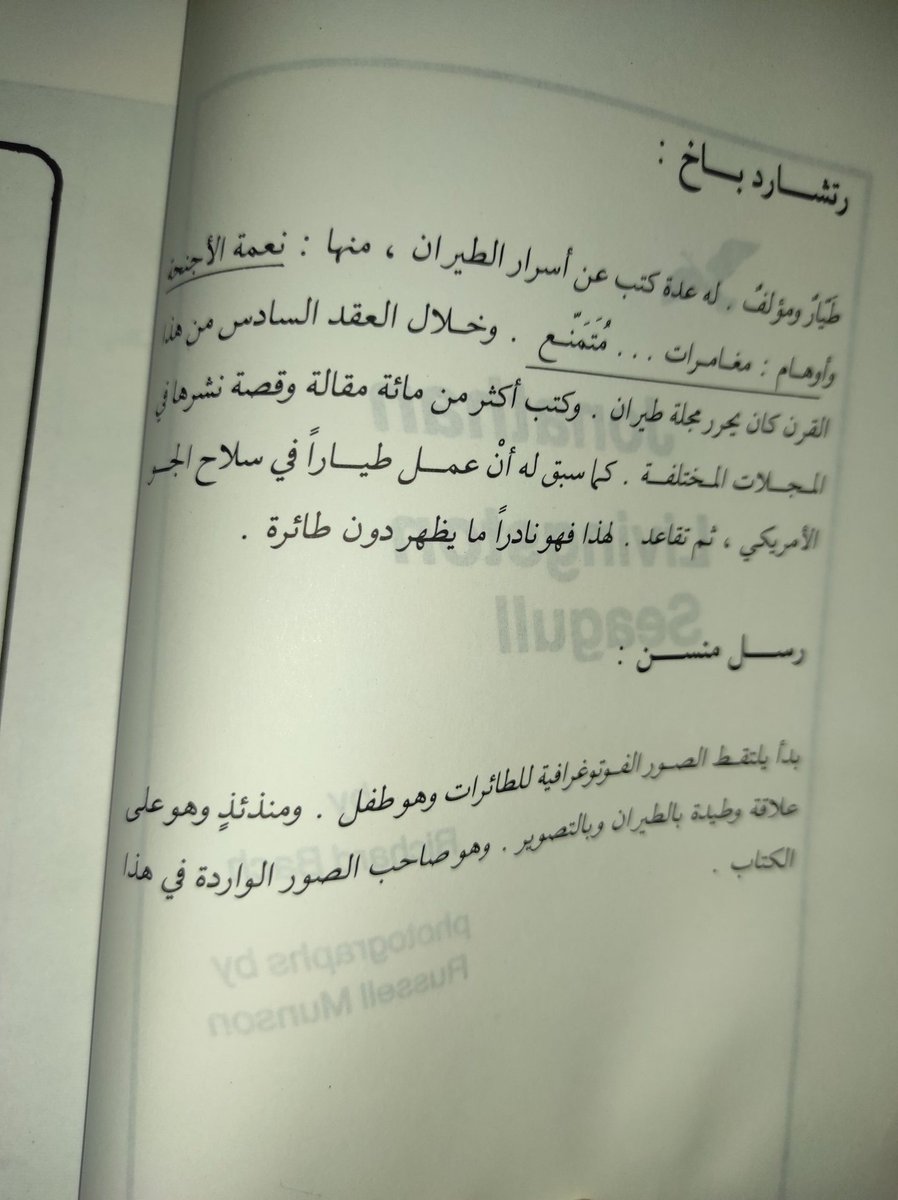 رتشارد باخ :
طَيّارٌ ومؤلفٌ . له عدة كتب عن أسرار الطيران ، منها : نعمة الأجنحة
وأوهام : مغامرات ... مُتَمَنّع . وخلال العقد السادس من هذا
القرن كان يحرر مجلة طيران . وكتب أكثر من مائة مقالة وقصة نشرها في
المجلات المختلفة . كما سبق له أنْ عمل طياراً في سلاح الجو
الأمريكي ، ثم تقاعد . لهذا فهو نادراً ما يظهر دون طائرة .
رسل منسن :
بدأ يلتقط الصور الفوتوغرافية للطائرات وهو طفل . ومنذئذٍ وهو على
علاقة وطيدة بالطيران وبالتصوير . وهو صاحب الصور الواردة في هذا
الكتاب .
Jonathan
Livingston
Seagull
by
Richard Bach
photographs by
Russell Munson